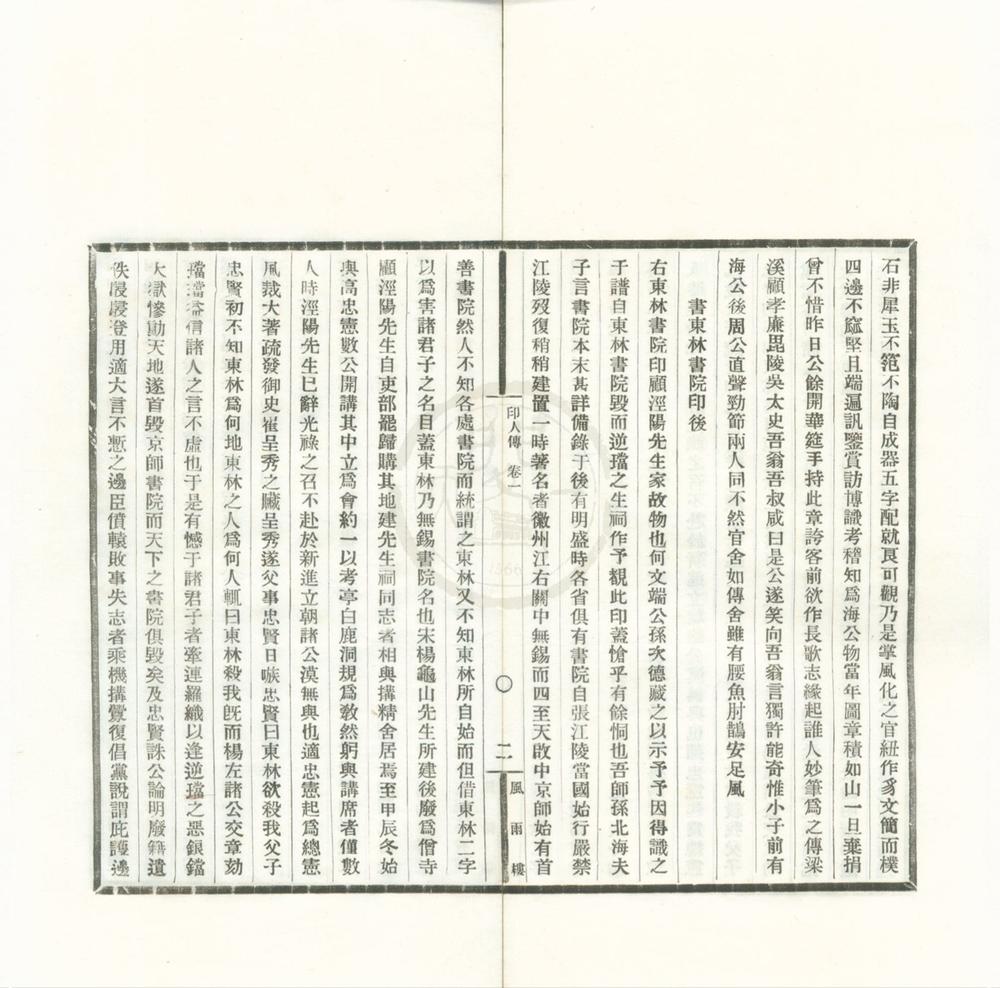 石非犀玉不笵不陶自成器五字配就良可觀乃是掌風化之官紐作豸文簡而樸
四邊不窳堅且端遍訊鑒賞訪博識考稽知爲海公物當年圖章積如山一旦棄捐
曾不惜昨日公餘開華筵手持此章誇客前欲作長歌志緣起誰人妙筆爲之傳梁
溪顧孝廉毘陵吳太史吾翁吾叔咸曰是公遂笑向吾翁言獨許能奇惟小子前有
海公後周公直聲勁節兩人同不然官舍如傳舍雖有腰魚肘鵲安足風
書東林書院印後
右東林書院印顧涇陽先生家故物也何文端公孫次德藏之以示予予因得識之
于譜自東林書院毀而逆璫之生祠作予覩此印蓋愴乎有餘恫也吾師孫北海夫
子言書院本末甚詳備錄于後有明盛時各省俱有書院自張江陵當國始行嚴禁
江陵歿復稍稍建置一時著名者徽州江右關中無錫而四至天啟中京師始有首
印人傳 卷一
二
風雨樓
善書院然人不知各處書院而統謂之東林又不知東林所自始而但借東林二字
以爲害諸君子之名目蓋東林乃無錫書院名也宋楊龜山先生所建後廢爲僧寺
顧涇陽先生自吏部罷歸購其地建先生祠同志者相與搆精舍居焉至甲辰冬始
與高忠憲數公開講其中立爲會約一以考亭白鹿洞規爲敎然躬與講席者僅數
人時涇陽先生已辭光祿之召不赴於新進立朝諸公漠無與也適忠憲起爲總憲
風裁大著疏發御史崔呈秀之贓呈秀遂父事忠賢日嗾忠賢曰東林欲殺我父子
忠賢初不知東林爲何地東林之人爲何人輒曰東林殺我旣而楊左諸公交章劾
璫璫益信諸人之言不虛也于是有憾于諸君子者牽連羅織以逢逆璫之惡銀鐺
大獄慘動天地遂首毀京師書院而天下之書院俱毀矣及忠賢誅公論明廢籍遺
佚寖寖登用適大言不慙之邊臣僨轅敗事失志者乘機搆釁復倡黨說謂庇護邊